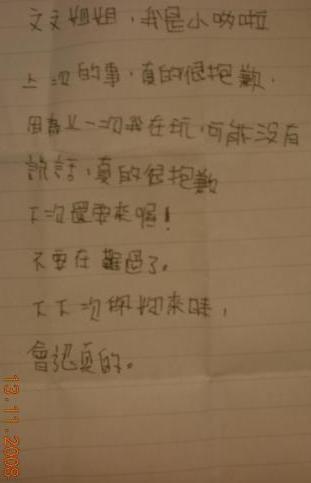 文文姐姐,我是小呦啦
上次的事,真的很抱歉.
因為上一次我在玩,可能沒有
說話,真的很抱歉
下次還要來喔!
不要在難過了。
下下次你來時,
會認真的。
13.11.2009